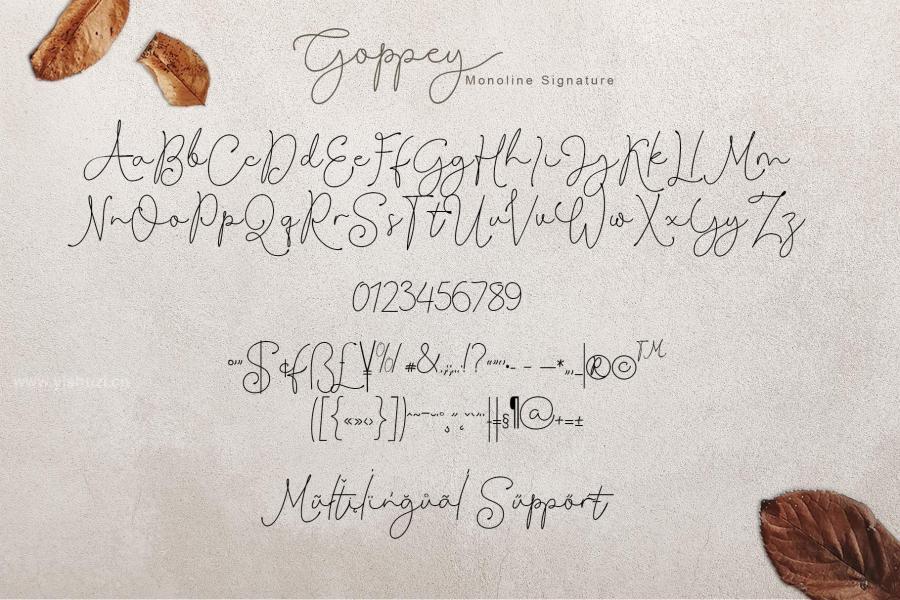 Goppey
Monoline Signature
AaBbCcDdEeFfGgHhIiJjKkLlMm
NnOoPpQqRrSsTtUuVvWwXxYyZz
0123456789
$¢ƒß£¥%/#&!?®©™
([{«»‹›}])§¶@+=±
www.yishuzi.cn
Multilingual Support